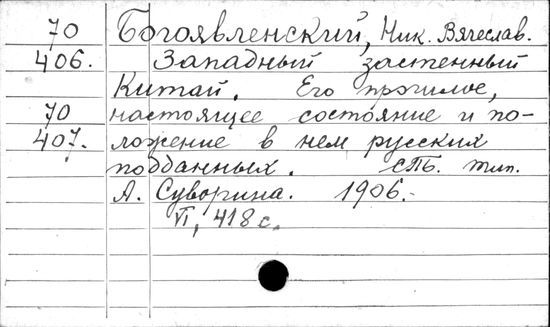 70 Богоявленский, Ник. Вячеслав.
406. Западный застенный
Китай. Его прошлое,
70 настоящее состояние и по-
407. ложение в нем русских
подданных. СПб. тип.
А. Суворина. 1906.
VI, 418 с.